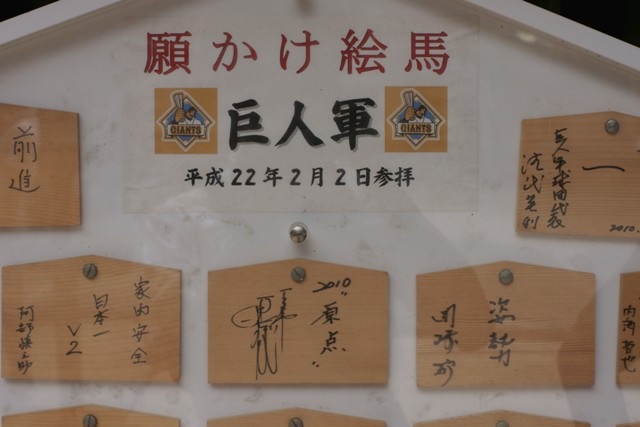 願かけ絵馬
GIANTS
巨人軍
GIANTS
平成22年2月2日参拝
前進
一
2010.
家内安全
日本一
V2
阿部慎之助
2010
"原点"
姿勢
田塚
内海哲也